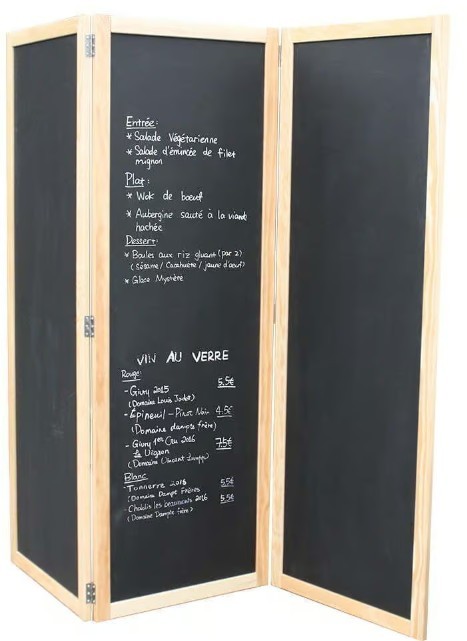 Entrée:
* Salade Végétarienne
* Salade d'émincée de filet
mignon
Plat:
* Wok de boeuf
* Aubergine sauté à la viande
hachée
Dessert:
* Boules aux riz gluant (par 2)
(Sésame / Cacahuète / jaune d'oeuf)
* Glace Mystère
VIN AU VERRE
Rouge:
- Givry 2015 5.5€
(Domaine Louis Jadot)
- Epineuil - Pinot Noir 4.5€
(Domaine dampte frère)
- Givry 1er Cru 2016 7.5€
(Domaine Vincent
Blanc
- Tonnerre 2018 5.5€
(Domaine Dampt Frères)
- Chablis les beaumonts 2016 5.5€
(Domaine Dampte frère)